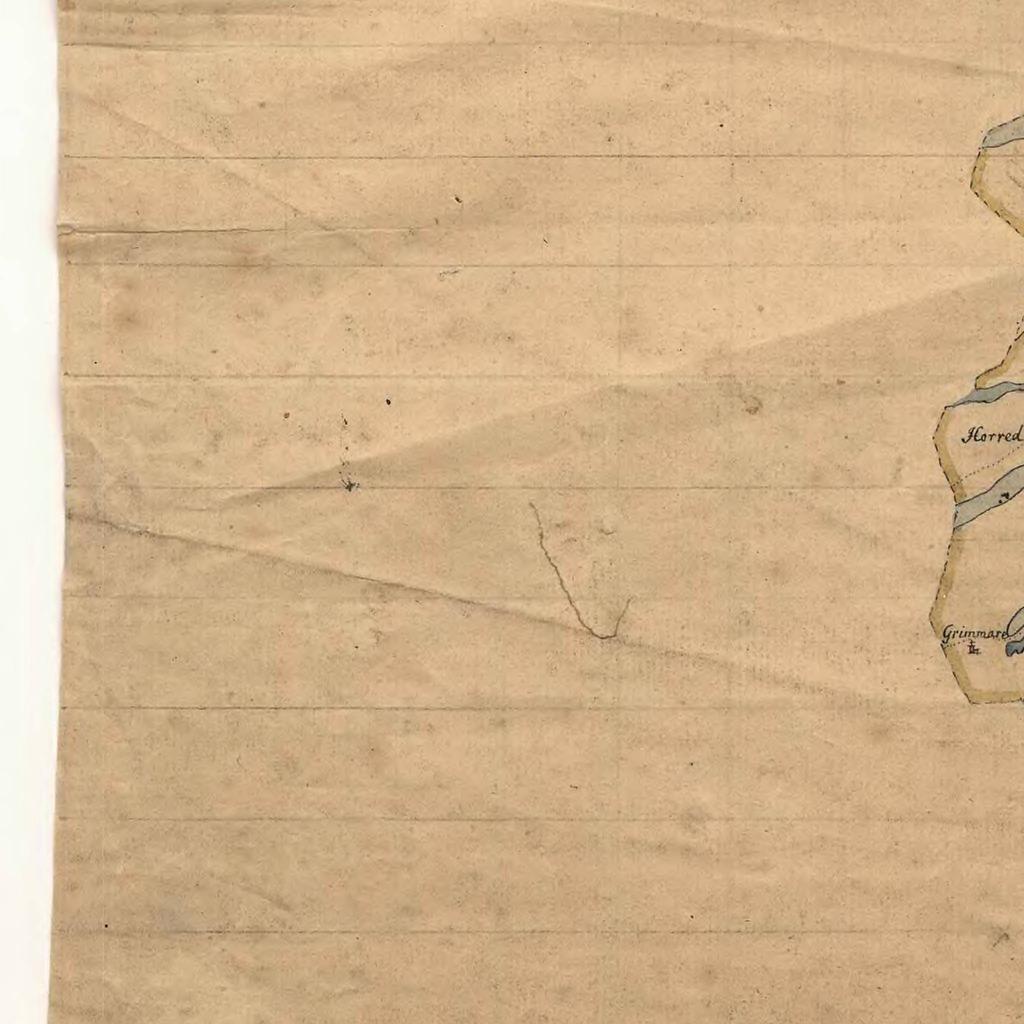 Horred
Grimmare